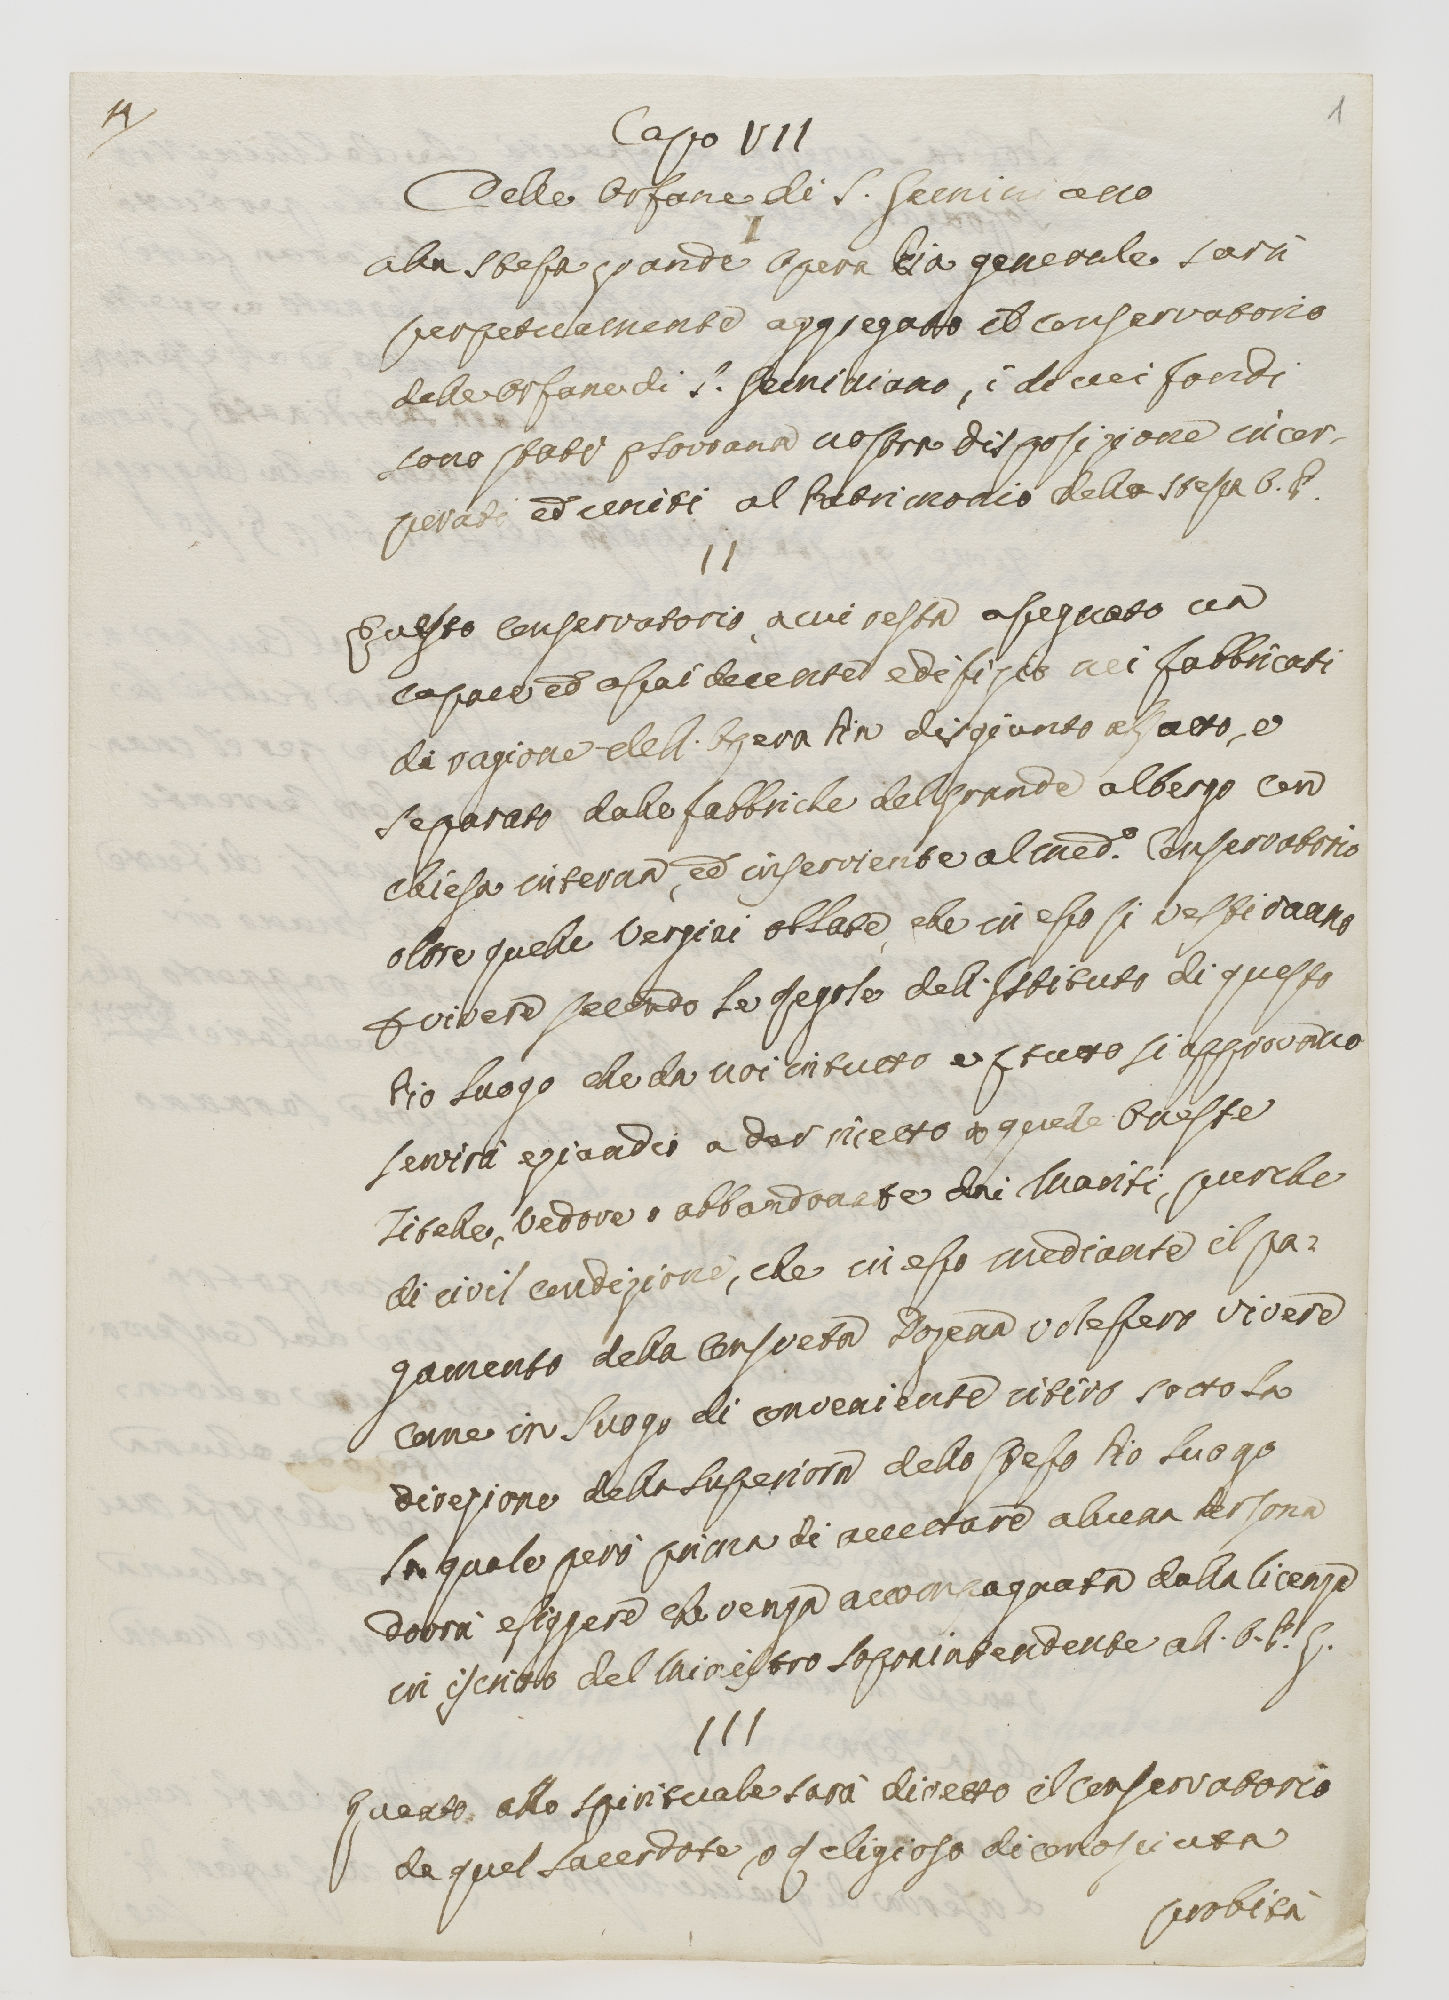 14
1
Capo VII
Delle Orfane di S. Geminiano
I
alla stessa grande Opera Pia generale sarà
perpetuamente aggregato il conservatorio
delle orfane di S. Geminiano, i di cui fondi
sono stati p sovrana nostra disposizione incor-
perati ed uniti al Patrimonio della stessa O. P.
II
Questo conservatorio, a cui resta assegnato un
capace ed assai decente edifizio nei fabbricati
di ragione dell'Opera Pia disgiunto affatto, e
separato dalle fabbriche del grande albergo con
chiesa interna, ed inserviente al med.o Conservatorio
oltre quelle Vergini oblate, che in esso si vestiranno
p vivere secondo le regole dell'Istituto di questo
Pio Luogo che da noi in tutto e p tutto si approvano
servirà eziandio a dar ricetto a quelle oneste
Zitelle, Vedove o abbandonate dai Mariti, purche
di civil condizione, che in esso mediante il pa-
gamento della consueta Dozena volessero vivere
come in luogo di conveniente ritiro sotto la
direzione della Superiora dello stesso Pio Luogo
la quale però prima di accettare alcuna Persona
dovrà esiggere che venga accompagnata dalla licenza
in iscritto del Ministro soprintendente all'O. P. G.
III
Quanto allo spirituale sarà diretto il conservatorio
da quel sacerdote, o Religioso di conosciuta
probità